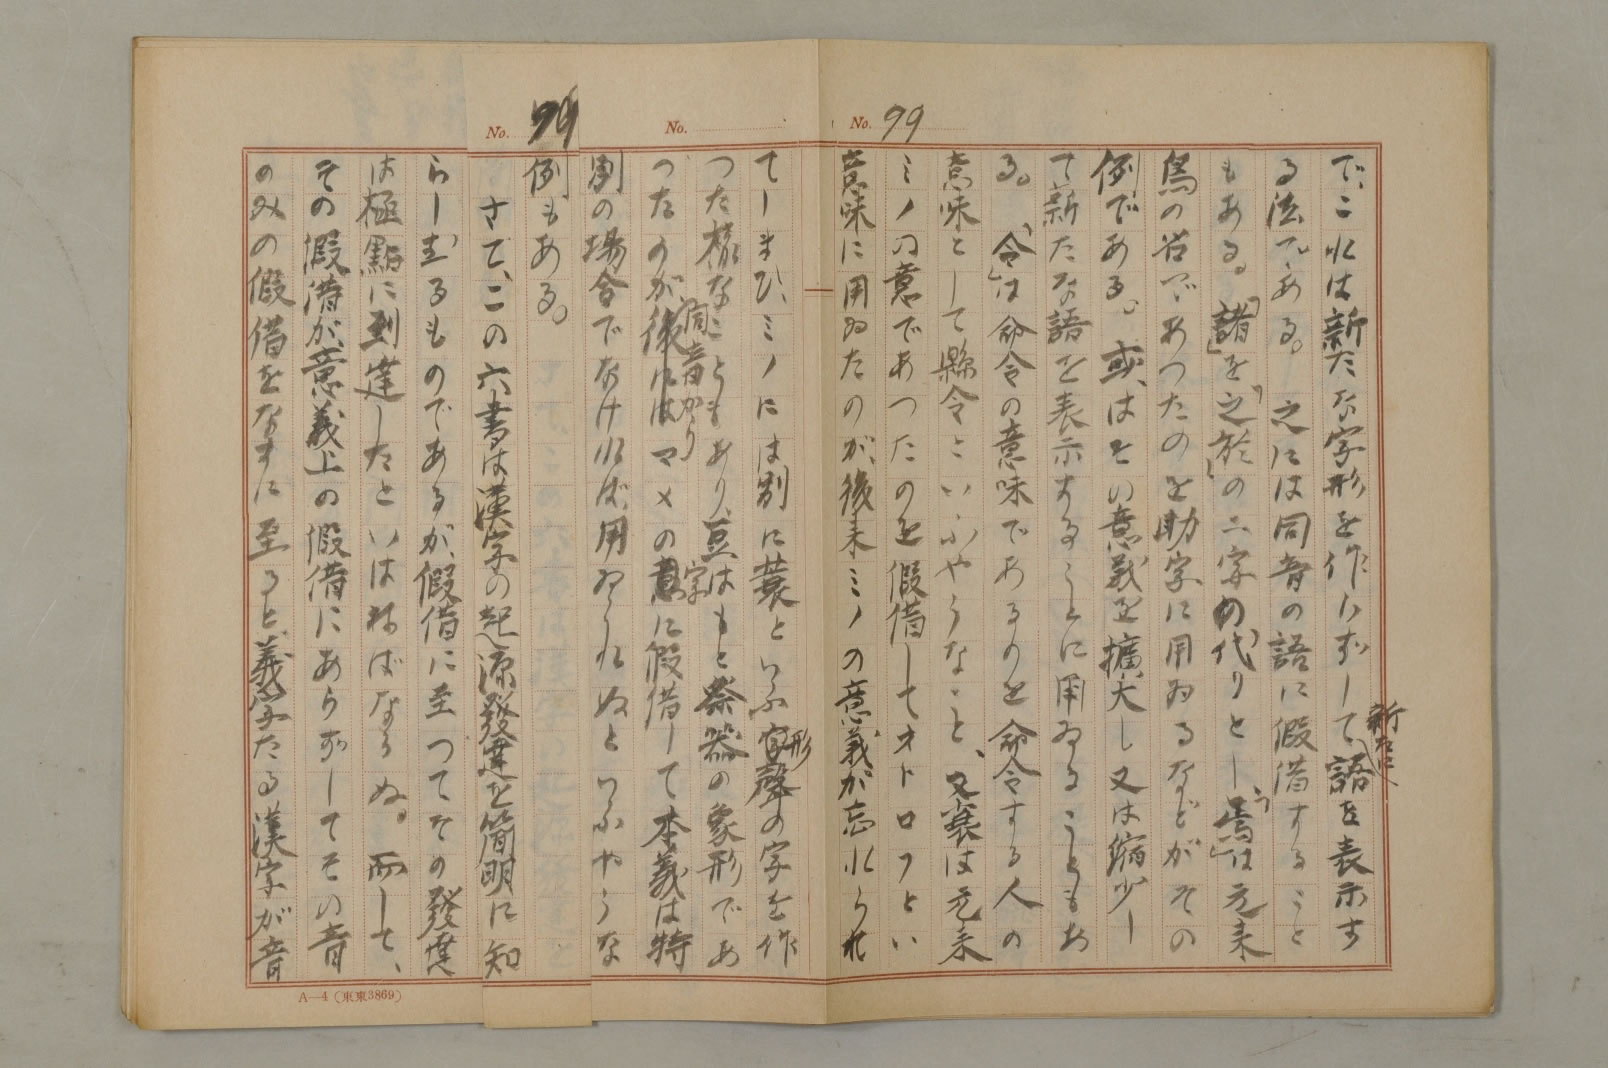 No. 79
で、これは新たな字形を作らずして、新たに語を表示す
る法である。之には同音の語に假借すること
もある。「諸」を「之於」の二字の代りとし「焉」は元来
鳥の名であつたのを助字に用ゐるなどがその
例である。或はその意義を擴大し又は縮少し
て新たな語を表示することに用ゐることもあ
る。「令」は命令の意味であるのを命令する人の
意味として縣令といふやうなこと、又衰は元来
ミノの意であつたのを假借してオトロフとい
意味に用ゐたのが、後来ミノの意義が忘れられ
No.
てしまひ、ミノには別に蓑といふ形聲の字を作
つた樣なこともあり、豆字はもと祭器の象形であ
つたのが、後には同音からマメの意に假借して本義は特
別の場合でなければ、用ゐられぬといふやうな
No. 79
例もある。
さて、この六書は漢字の起源發達を簡明に知
らしむるものであるが、假借に至つてその發達
は極點に到達したといはねばならぬ。而して、
その假借が、意義上の假借にあらずしてその音
のみの假借をなすに至ると、義字たる漢字が音
A—4（東東3869）